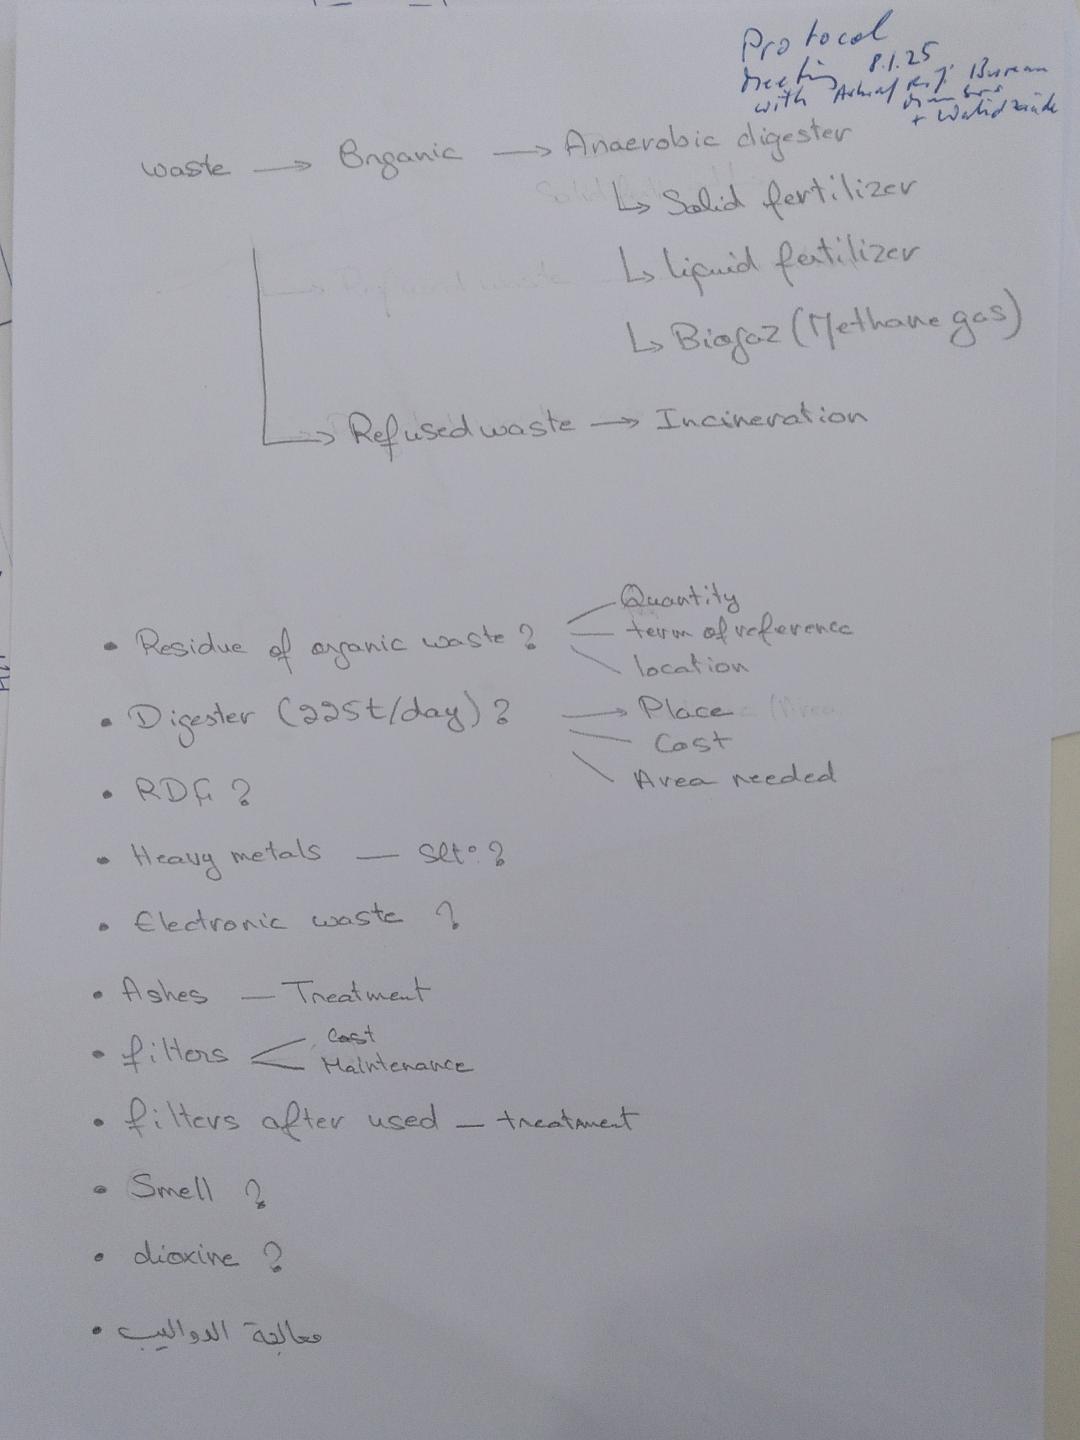 Protocol
Meeting 8.1.25
with Ashraf Bureau
+ Walid
waste → Organic → Anaerobic digester
↳ Solid fertilizer
↳ liquid fertilizer
↳ Biogaz (Methane gas)
→ Refused waste → Incineration
• Residue of organic waste ?
Quantity
term of reference
location
• Digester (225t/day) ?
→ Place
Cost
Area needed
• RDF ?
• Heavy metals — slt° ?
• Electronic waste ?
• Ashes — Treatment
• filters
Cost
Maintenance
• filters after used — treatment
• Smell ?
• dioxine ?
• معالجة الدواليب